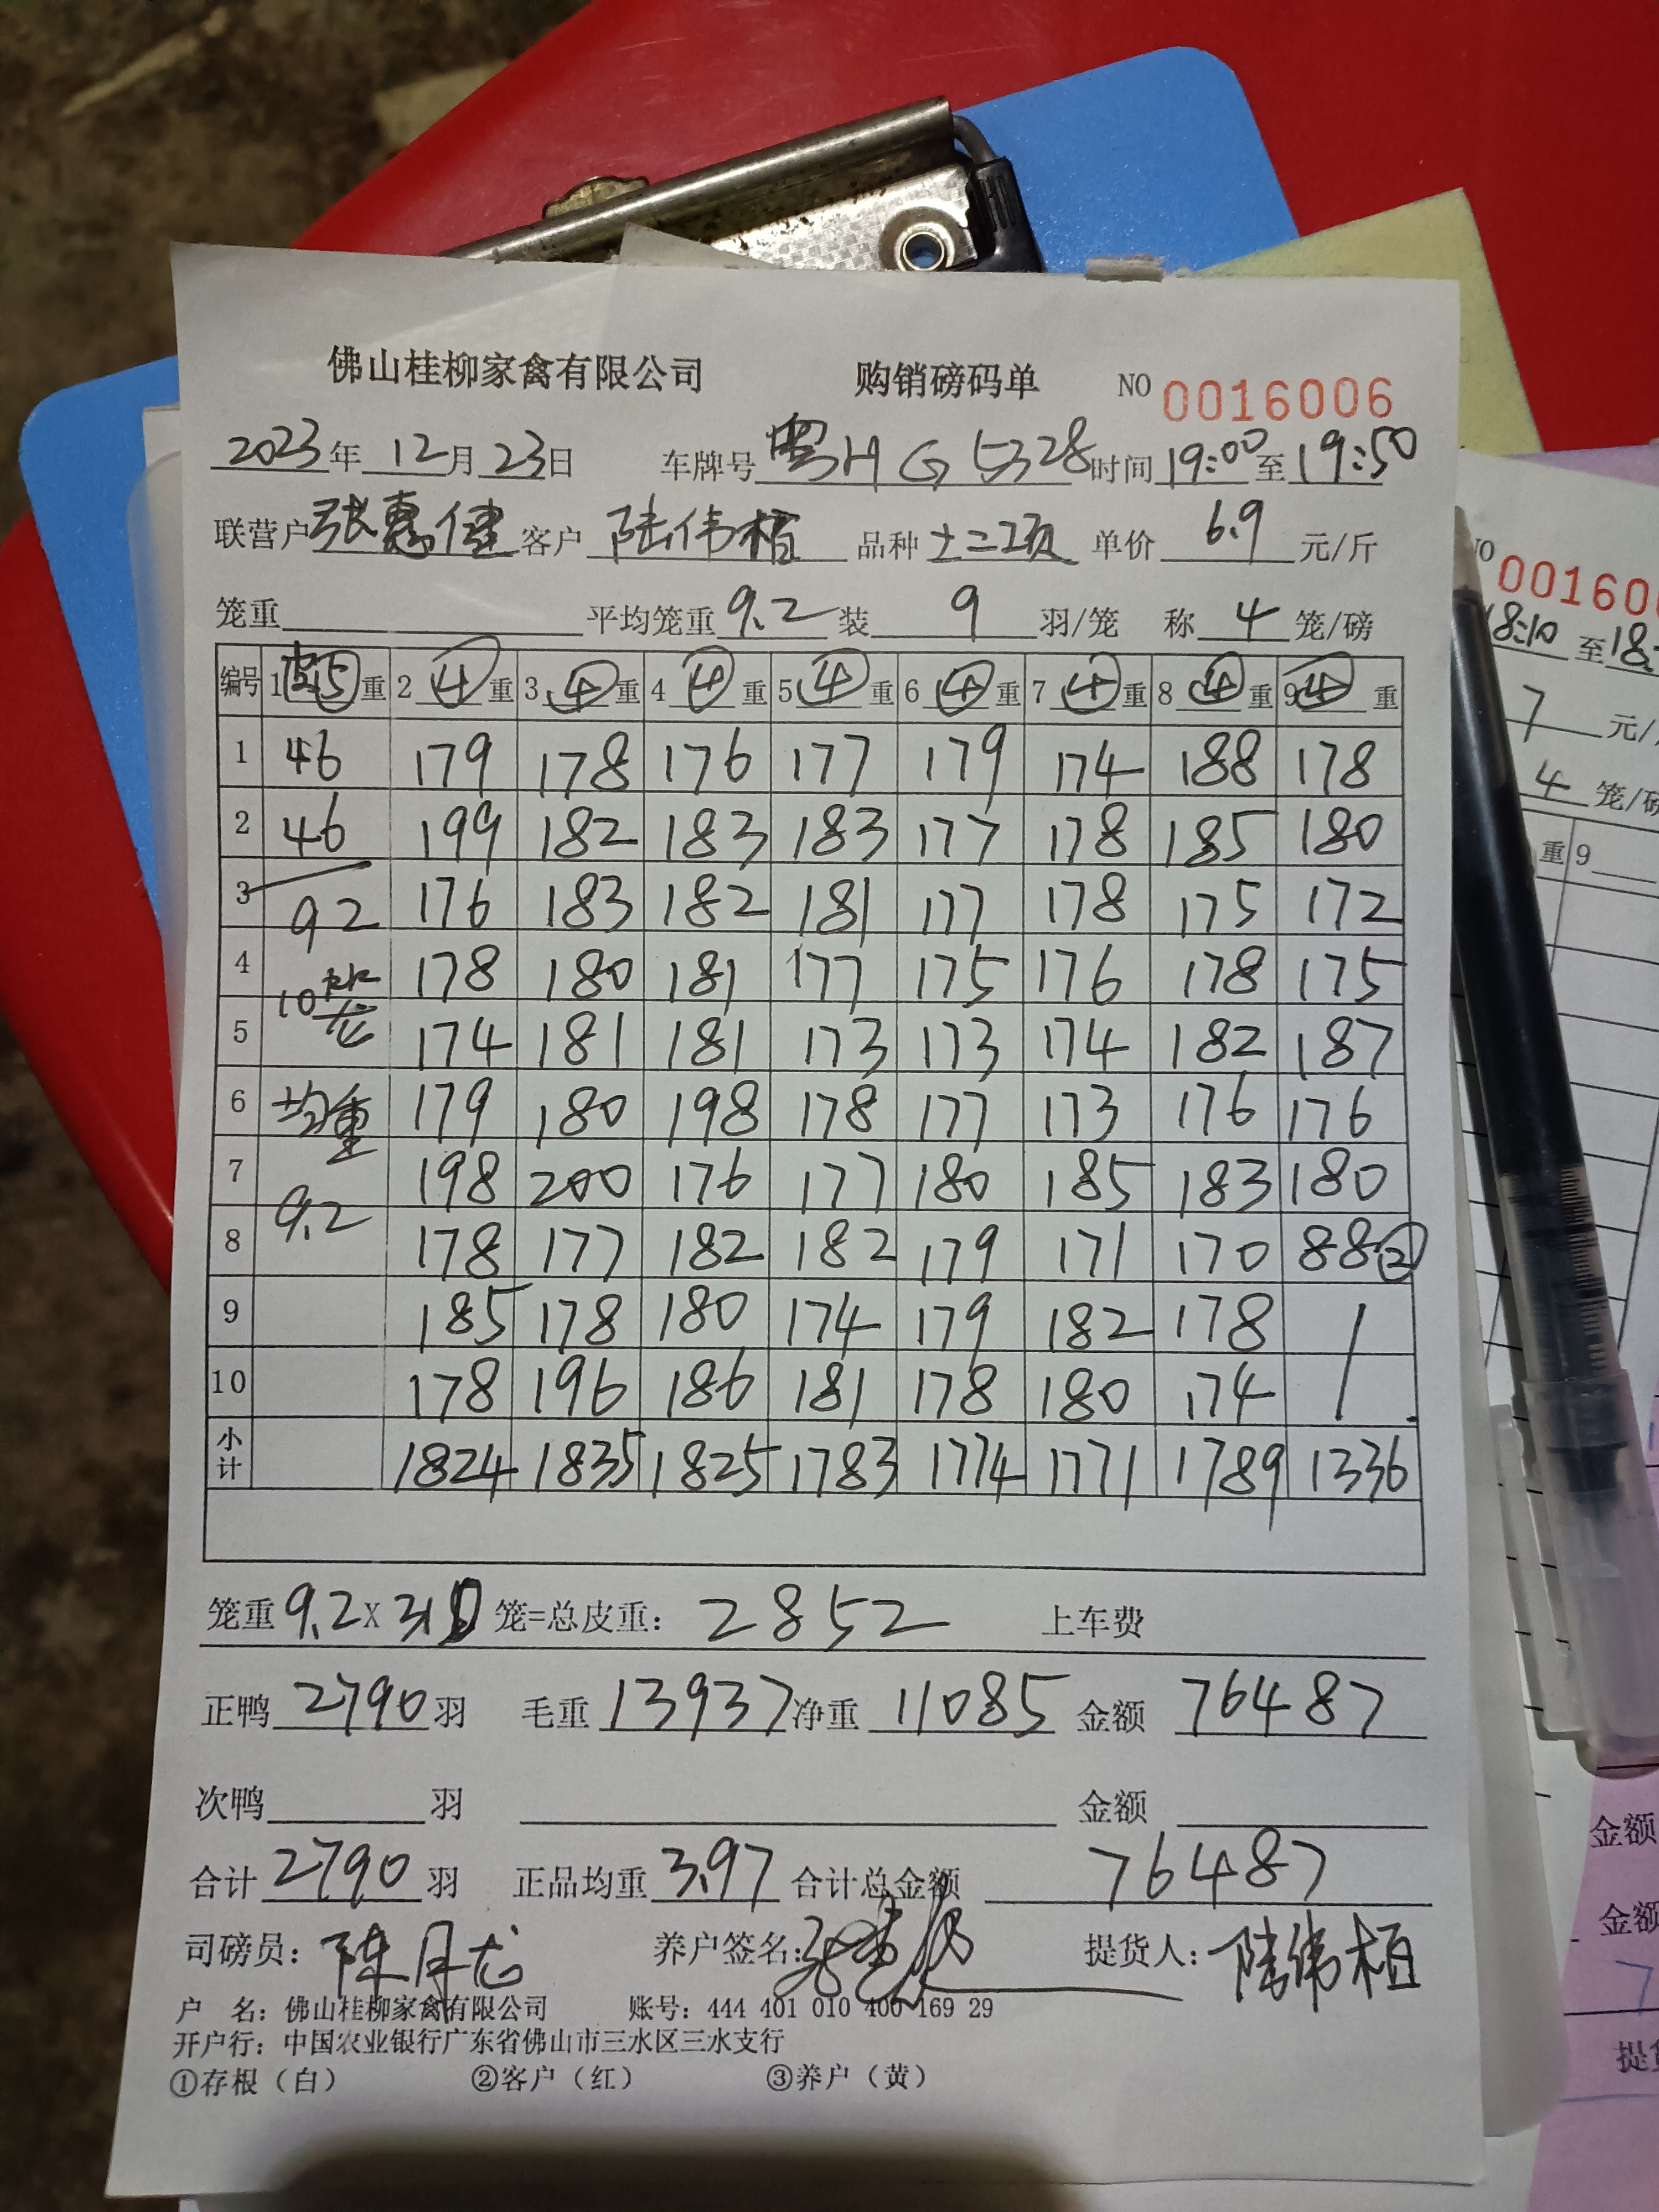 佛山桂柳家禽有限公司 购销磅码单 NO 0016006
2023年 12月 23日 车牌号 粤H G 5328 时间 19:00 至 19:50
联营户 张惠健 客户 陆伟栢 品种 十二项 单价 6.9 元/斤
笼重 平均笼重 9.2 装 9 羽/笼 称 4 笼/磅
编号 1 皮⑤ 重 2 ④ 重 3 ④ 重 4 ④ 重 5 ④ 重 6 ④ 重 7 ④ 重 8 ④ 重 9 ④ 重
1 46 179 178 176 177 179 174 188 178
2 46 199 182 183 183 177 178 185 180
3 92 176 183 182 181 177 178 175 172
4 10笼 178 180 181 177 175 176 178 175
5 174 181 181 173 173 174 182 187
6 均重 179 180 198 178 177 173 176 176
7 198 200 176 177 180 185 183 180
8 9.2 178 177 182 182 179 171 170 88②
9 185 178 180 174 179 182 178 /
10 178 196 186 181 178 180 174 /
小计 1824 1835 1825 1783 1774 1771 1789 1336
笼重 9.2 X 310 笼=总皮重: 2852 上车费
正鸭 2790 羽 毛重 13937 净重 11085 金额 76487
次鸭 羽 金额
合计 2790 羽 正品均重 3.97 合计总金额 76487
司磅员: 陈月龙 养户签名: 提货人: 陆伟栢
户 名: 佛山桂柳家禽有限公司 账号: 444 401 010 400 169 29
开户行: 中国农业银行广东省佛山市三水区三水支行
①存根（白） ②客户（红） ③养户（黄）
NO 00160
18:10 至 18:
7 元/
4 笼/磅
重 9
金额
金额
7
提